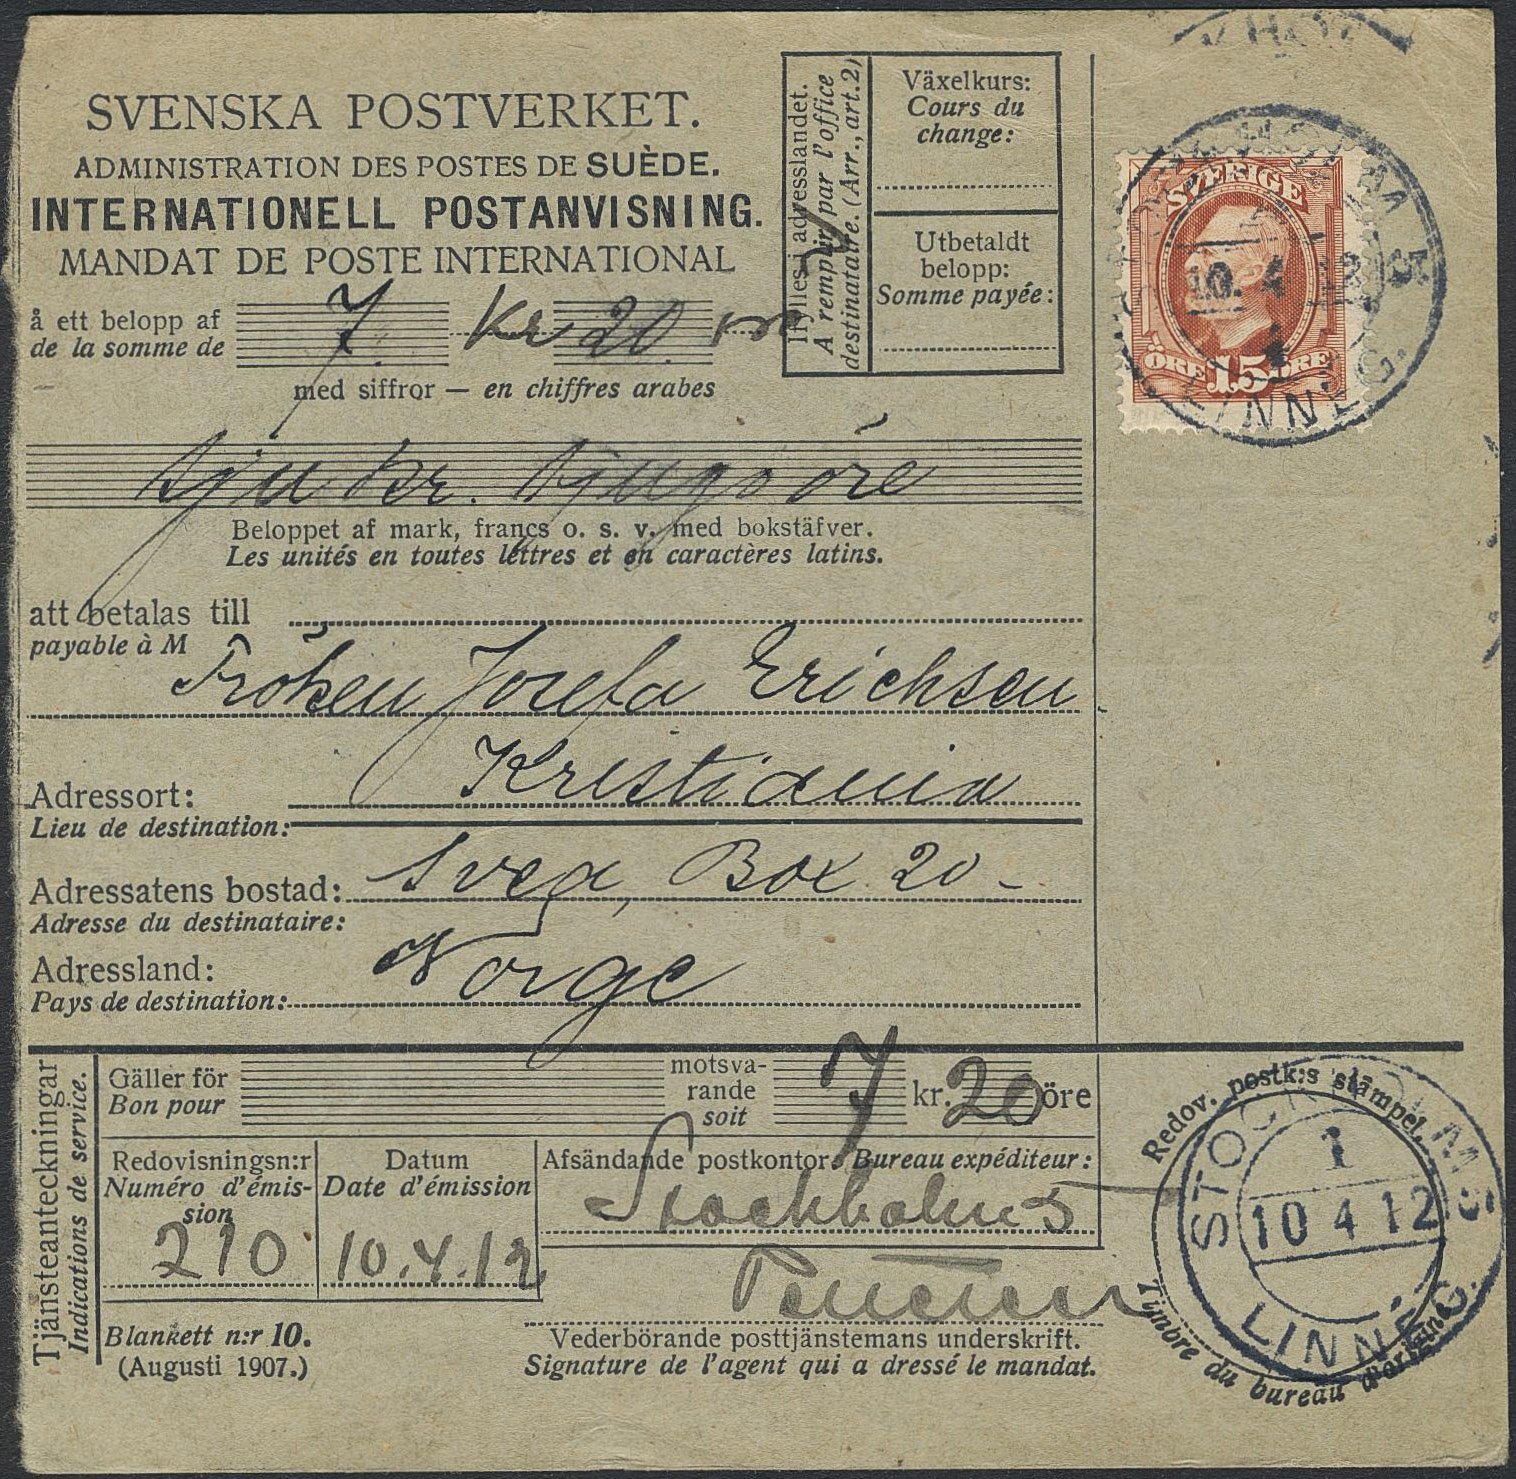 SVENSKA POSTVERKET.
ADMINISTRATION DES POSTES DE SUÈDE.
INTERNATIONELL POSTANVISNING.
MANDAT DE POSTE INTERNATIONAL
å ett belopp af
de la somme de
7 Kr 20
med siffror — en chiffres arabes
Ifylles i adresslandet.
A remplir par l'office
destinataire. (Arr., art. 2)
Växelkurs:
Cours du
change:
Utbetaldt
belopp:
Somme payée:
SVERIGE
ÖRE 15 ÖRE
10. 4
LINNÉG.
sju kr. tjugo öre
Beloppet af mark, francs o. s. v. med bokstäfver.
Les unités en toutes lettres et en caractères latins.
att betalas till
payable à M
Fröken Josefa Erichsen
Kristiania
Adressort:
Lieu de destination:
Adressatens bostad: Svea, Box 20 -
Adresse du destinataire:
Adressland: Norge
Pays de destination:
Tjänsteanteckningar
Indications de service.
Gäller för
Bon pour
motsva-
rande
soit
7 kr. 20 öre
Redovisningsn:r
Numéro d'émis-
sion
210
Datum
Date d'émission
10.4.12
Afsändande postkontor. Bureau expéditeur:
Stockholm 5
Blankett n:r 10.
(Augusti 1907.)
Vederbörande posttjänstemans underskrift.
Signature de l'agent qui a dressé le mandat.
Redov. postk:s stämpel.
STOCKHOLM 5
1
10 4 12
LINNÉG.
Timbre du bureau d'origine.